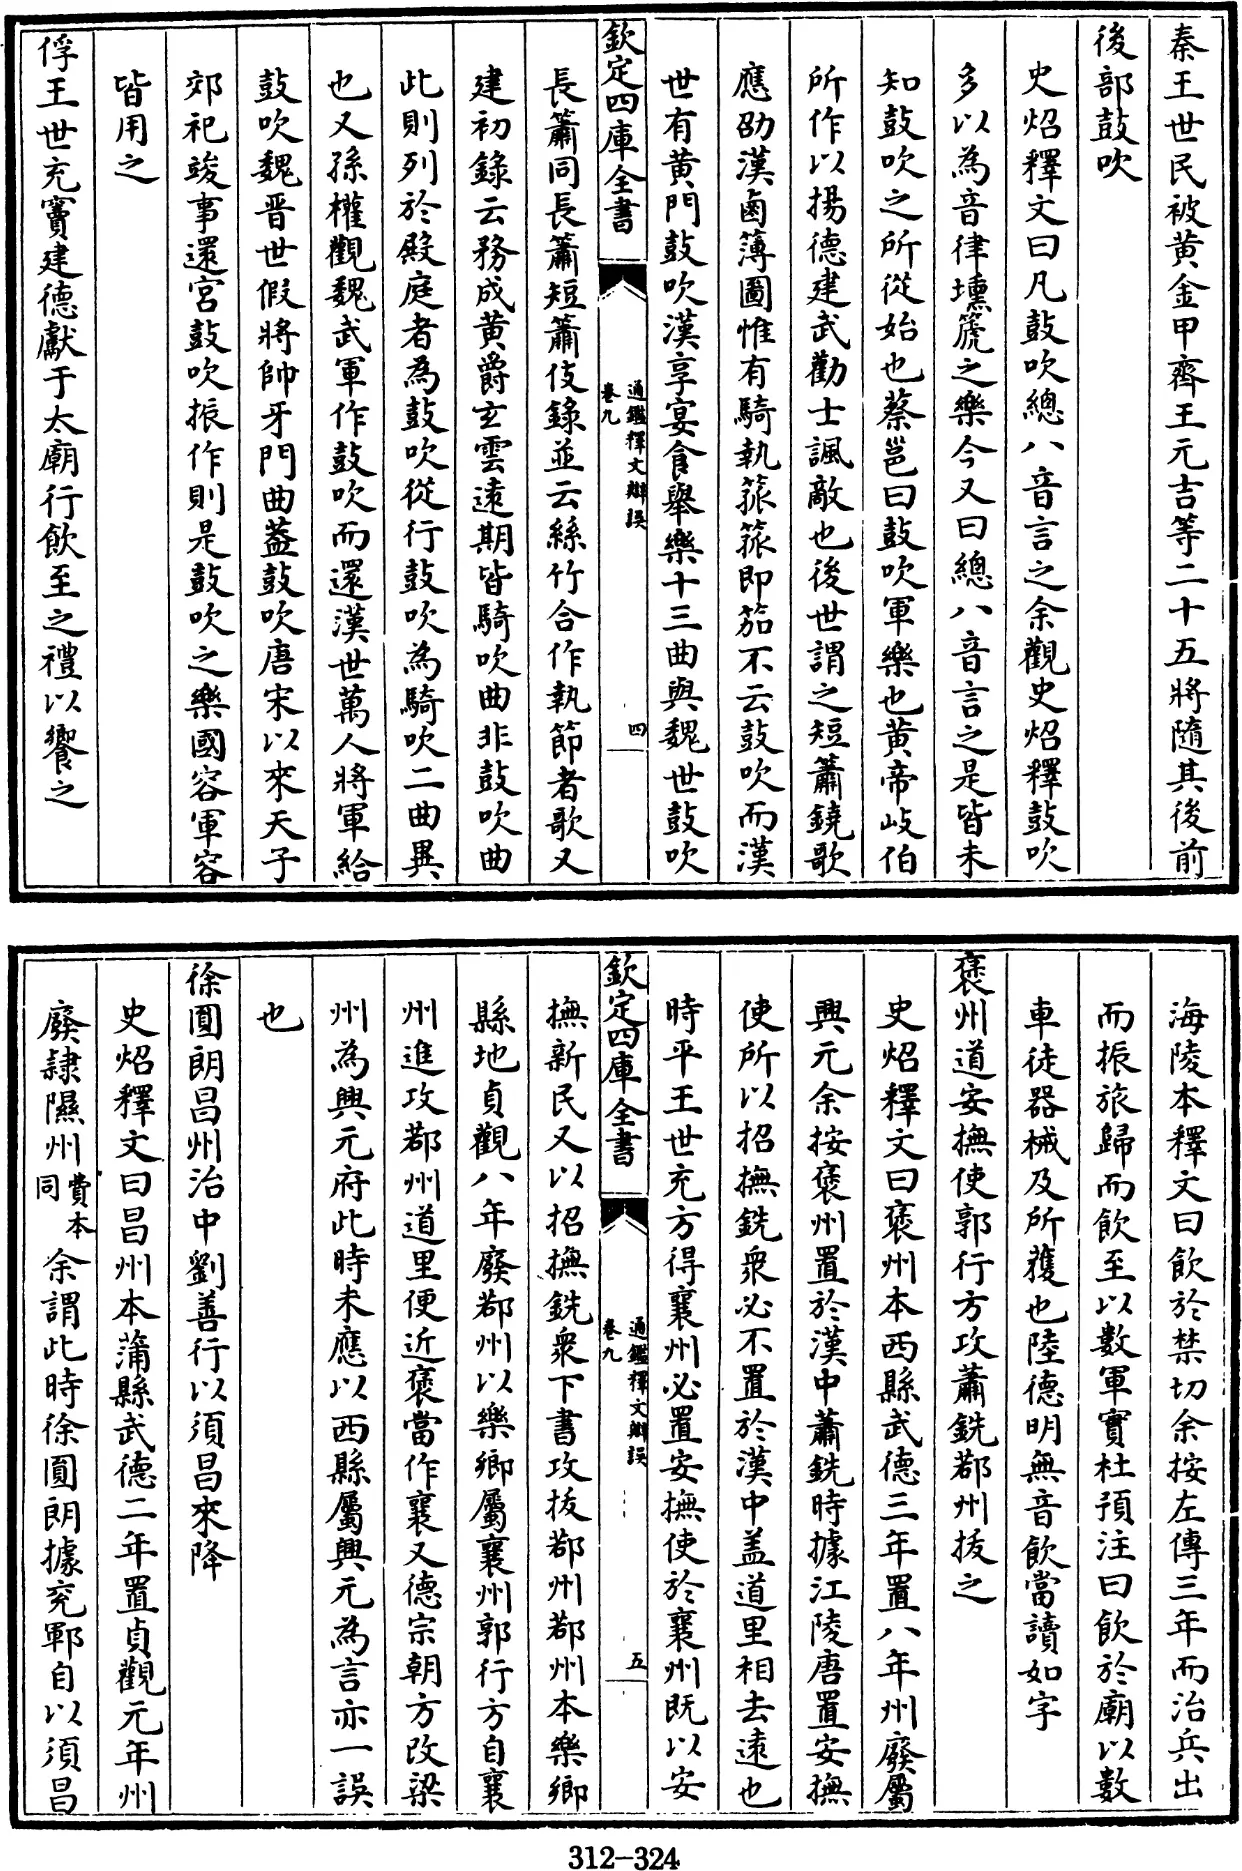 秦王世民被黄金甲齊王元吉等二十五將隨其後前
後部鼓吹
史炤釋文曰凡鼓吹總八音言之余觀史炤釋鼓吹
多以為音律壎篪之樂今又曰總八音言之是皆未
知鼓吹之所從始也蔡邕曰鼓吹軍樂也黄帝岐伯
所作以揚德建武勸士諷敵也後世謂之短簫鐃歌
應劭漢鹵簿圖惟有騎執箛箛即笳不云鼓吹而漢
世有黄門鼓吹漢享宴食舉樂十三曲與魏世鼓吹
欽定四庫全書
通鑑釋文辯誤
卷九
四
長簫同長簫短簫伎錄並云絲竹合作執節者歌又
建初錄云務成黄爵玄雲遠期皆騎吹曲非鼓吹曲
此則列於殿庭者為鼓吹從行鼓吹為騎吹二曲異
也又孫權觀魏武軍作鼓吹而還漢世萬人將軍給
鼓吹魏晋世假將帥牙門曲葢鼓吹唐宋以來天子
郊祀竣事還宮鼓吹振作則是鼓吹之樂國容軍容
皆用之
俘王世充竇建德獻于太廟行飲至之禮以饗之
海陵本釋文曰飲於禁切余按左傳三年而治兵出
而振旅歸而飲至以數軍實杜預注曰飲於廟以數
車徒器械及所獲也陸德明無音飲當讀如字
褒州道安撫使郭行方攻蕭銑鄀州拔之
史炤釋文曰褒州本西縣武德三年置八年州廢屬
興元余按褒州置於漢中蕭銑時據江陵唐置安撫
使所以招撫銑衆必不置於漢中盖道里相去遠也
時平王世充方得襄州必置安撫使於襄州既以安
欽定四庫全書
通鑑釋文辯誤
卷九
五
撫新民又以招撫銑衆下書攻拔鄀州鄀州本樂鄉
縣地貞觀八年廢鄀州以樂鄉屬襄州郭行方自襄
州進攻鄀州道里便近褒當作襄又德宗朝方改梁
州為興元府此時未應以西縣屬興元為言亦一誤
也
徐圓朗昌州治中劉善行以須昌來降
史炤釋文曰昌州本蒲縣武德二年置貞觀元年州
廢隷隰州費本同余謂此時徐圓朗據兖鄆自以須昌
312-324